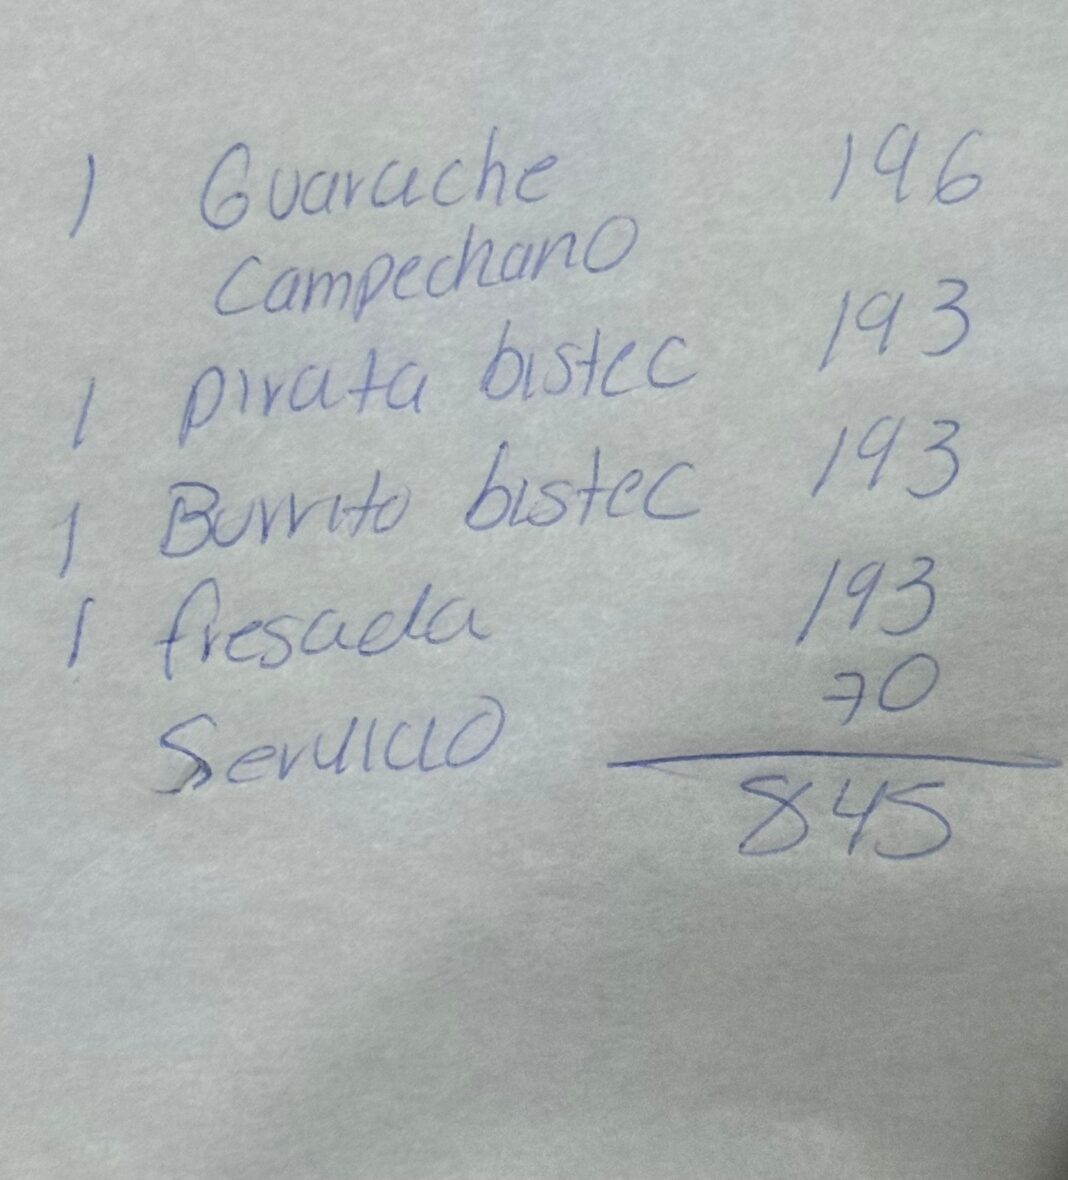 1 Guarache 196
Campechano
1 pirata bistec 193
1 Burrito bistec 193
1 fresada 193
Servicio 70
845